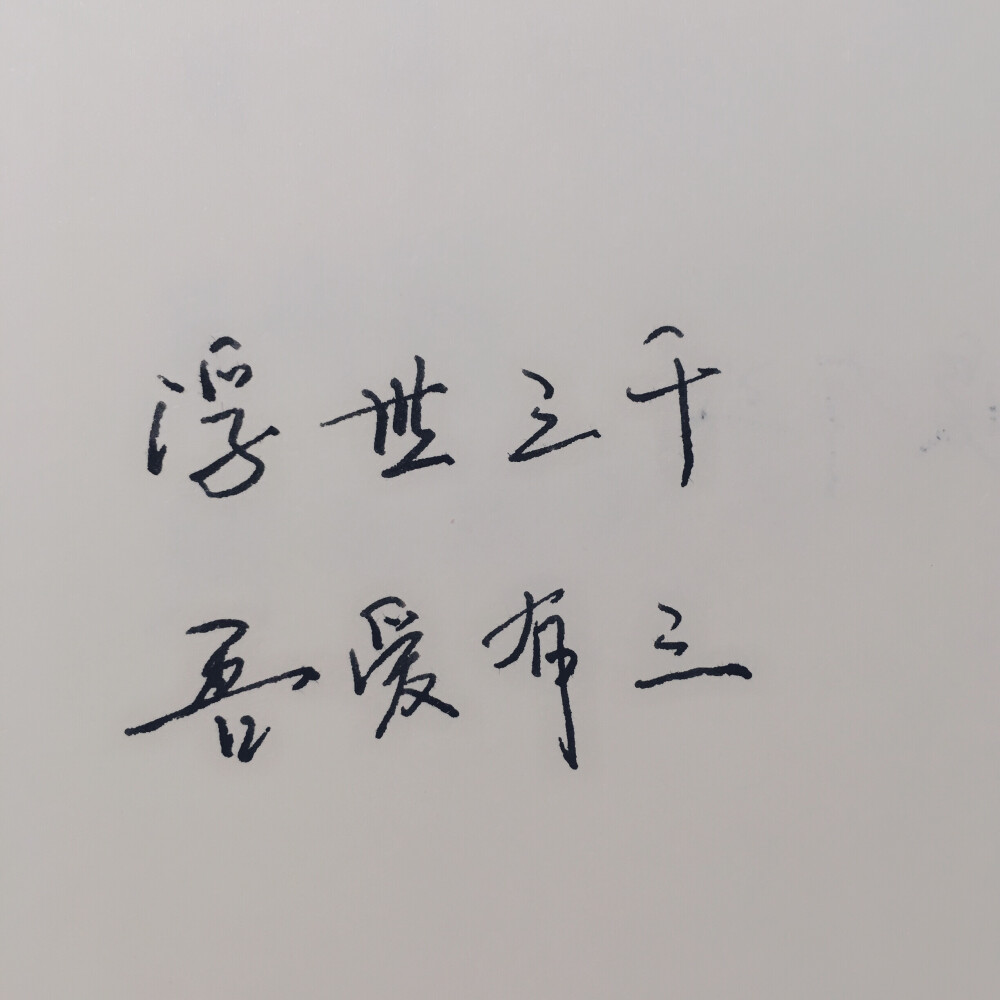 浮世三千
吾爱有三